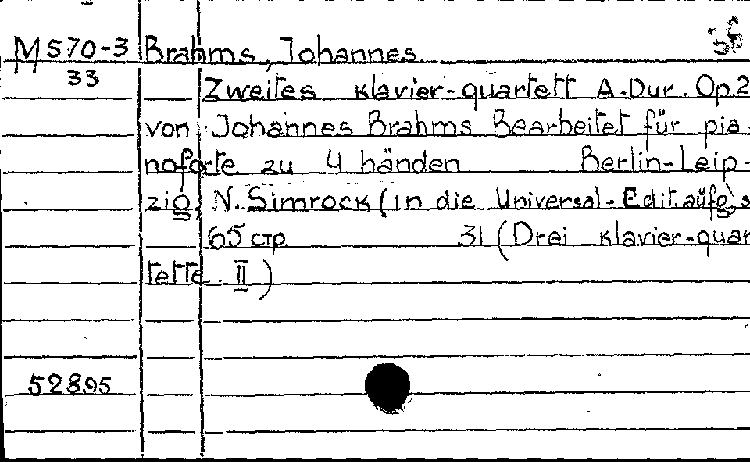 M570-3 Brahms, Johannes
33
Zweites klavier-quartett A-Dur. Op.2
von Johannes Brahms Bearbeitet für pia-
noforte zu 4 händen Berlin-Leip-
zig, N. Simrock (in die Universal-Edit. aufg.
65 стр 31 (Drei klavier-quar
tette II)
52895